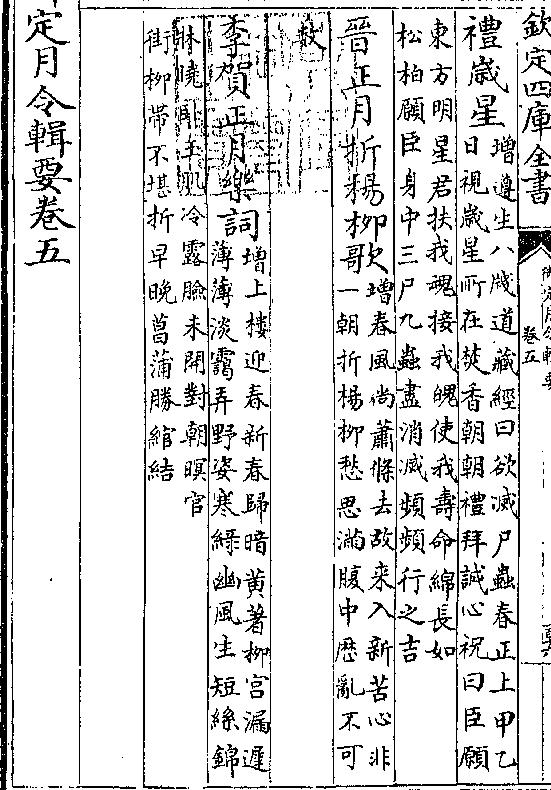 欽定四庫全書
卷五
禮歲星
增遵生八牋道藏經曰欲滅尸蟲春正上甲乙
日視歲星所在焚香朝朝禮拜誠心祝曰臣願
東方明星君扶我魂接我魄使我壽命綿長如
松柏願臣身中三尸九蟲盡消滅頻頻行之吉
晉正月折楊柳歌
增春風尚蕭條去故来入新苦心非
一朝折楊柳愁思滿腹中歷亂不可
數
李賀正月樂詞
增上樓迎春新春歸暗黃著柳宮漏遲
薄薄淡靄弄野姿寒綠幽風生短絲錦
牀曉臥玉肌冷露臉未開對朝暝官
街柳帶不堪折早晚菖蒲勝綰結
定月令輯要卷五